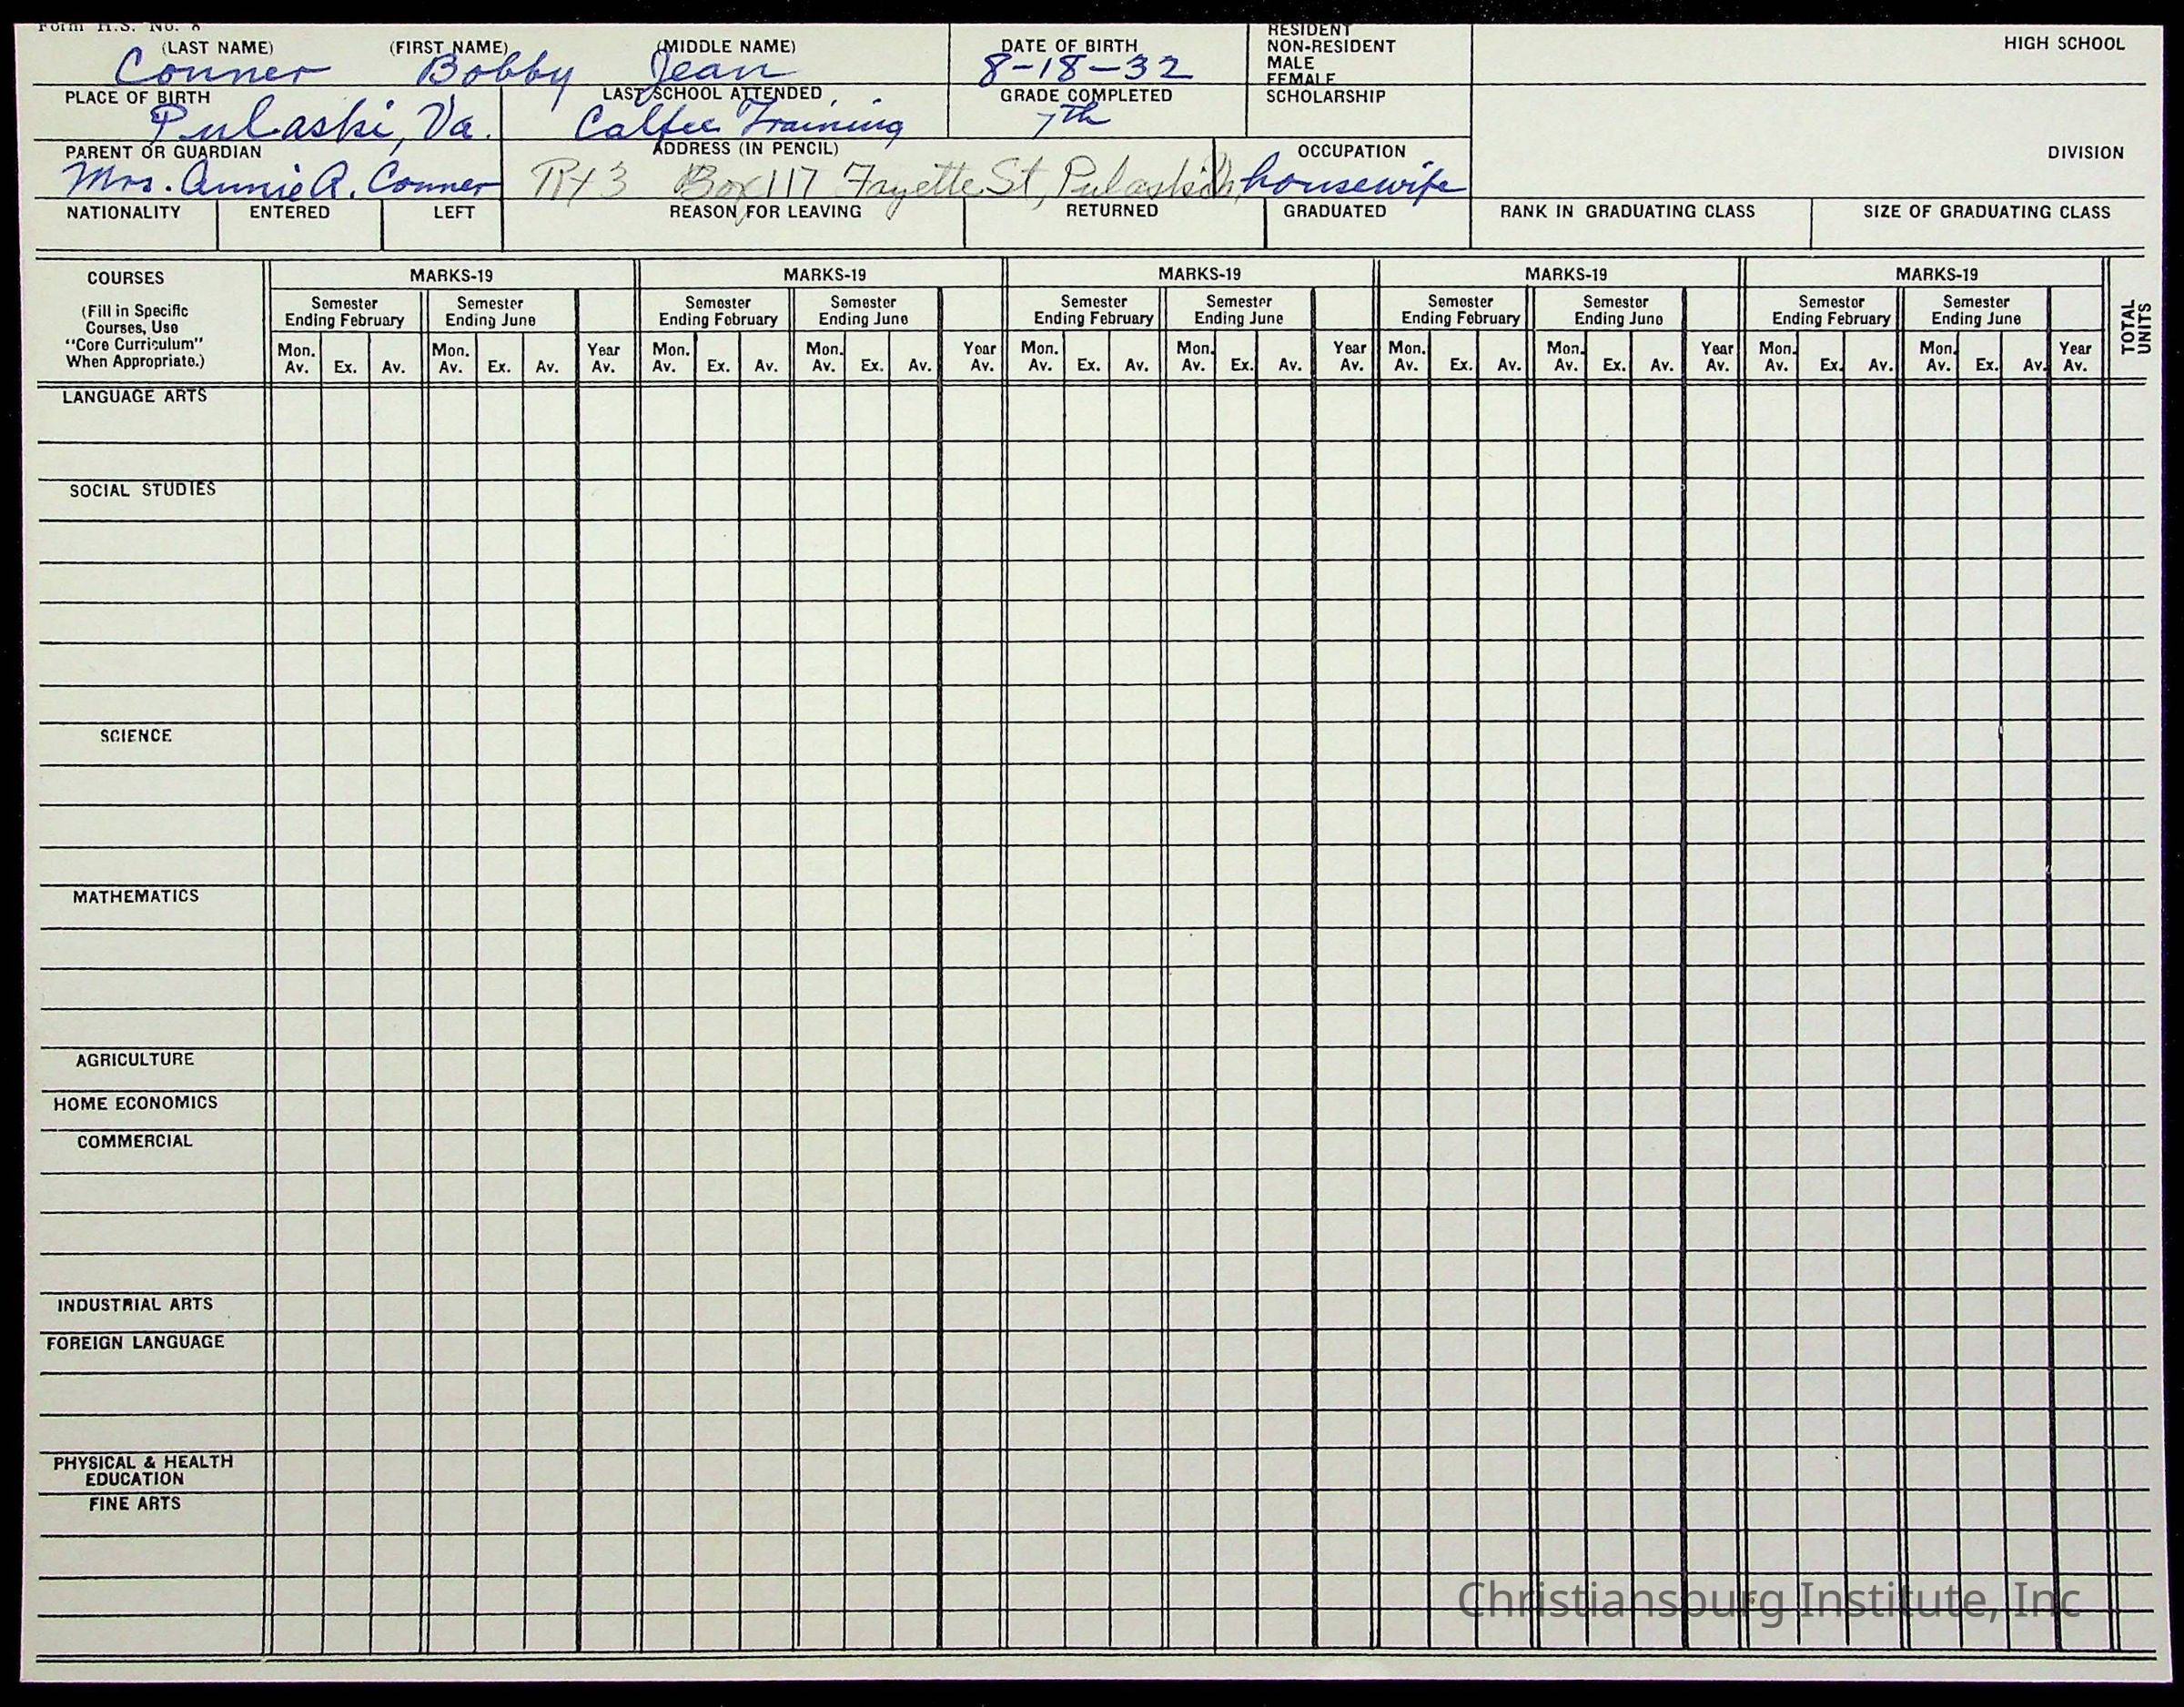 Form H.S. No. 8
(LAST NAME) (FIRST NAME) (MIDDLE NAME) DATE OF BIRTH RESIDENT HIGH SCHOOL
NON-RESIDENT
MALE
FEMALE
Conner Bobby Jean 8-18-32
PLACE OF BIRTH LAST SCHOOL ATTENDED GRADE COMPLETED SCHOLARSHIP
Pulaski, Va. Calfee Training 7th
PARENT OR GUARDIAN ADDRESS (IN PENCIL) OCCUPATION DIVISION
Mrs. Annie R. Conner Box 117 Fayette St, Pulaski housewife
NATIONALITY ENTERED LEFT REASON FOR LEAVING RETURNED GRADUATED RANK IN GRADUATING CLASS SIZE OF GRADUATING CLASS
COURSES MARKS-19 MARKS-19 MARKS-19 MARKS-19 MARKS-19
(Fill in Specific
Courses, Use
"Core Curriculum"
When Appropriate.)
Semester Semester Semester Semester Semester Semester Semester Semester Semester Semester
Ending February Ending June Ending February Ending June Ending February Ending June Ending February Ending June Ending February Ending June
TOTAL
UNITS
Mon. Mon. Year Mon. Mon. Year Mon. Mon. Year Mon. Mon. Year Mon. Mon. Year
Av. Ex. Av. Av. Ex. Av. Av. Av. Ex. Av. Av. Ex. Av. Av. Av. Ex. Av. Av. Ex. Av. Av. Av. Ex. Av. Av. Ex. Av. Av. Av. Ex. Av. Av. Ex. Av. Av.
LANGUAGE ARTS
SOCIAL STUDIES
SCIENCE
MATHEMATICS
AGRICULTURE
HOME ECONOMICS
COMMERCIAL
INDUSTRIAL ARTS
FOREIGN LANGUAGE
PHYSICAL & HEALTH
EDUCATION
FINE ARTS
Christiansburg Institute, Inc